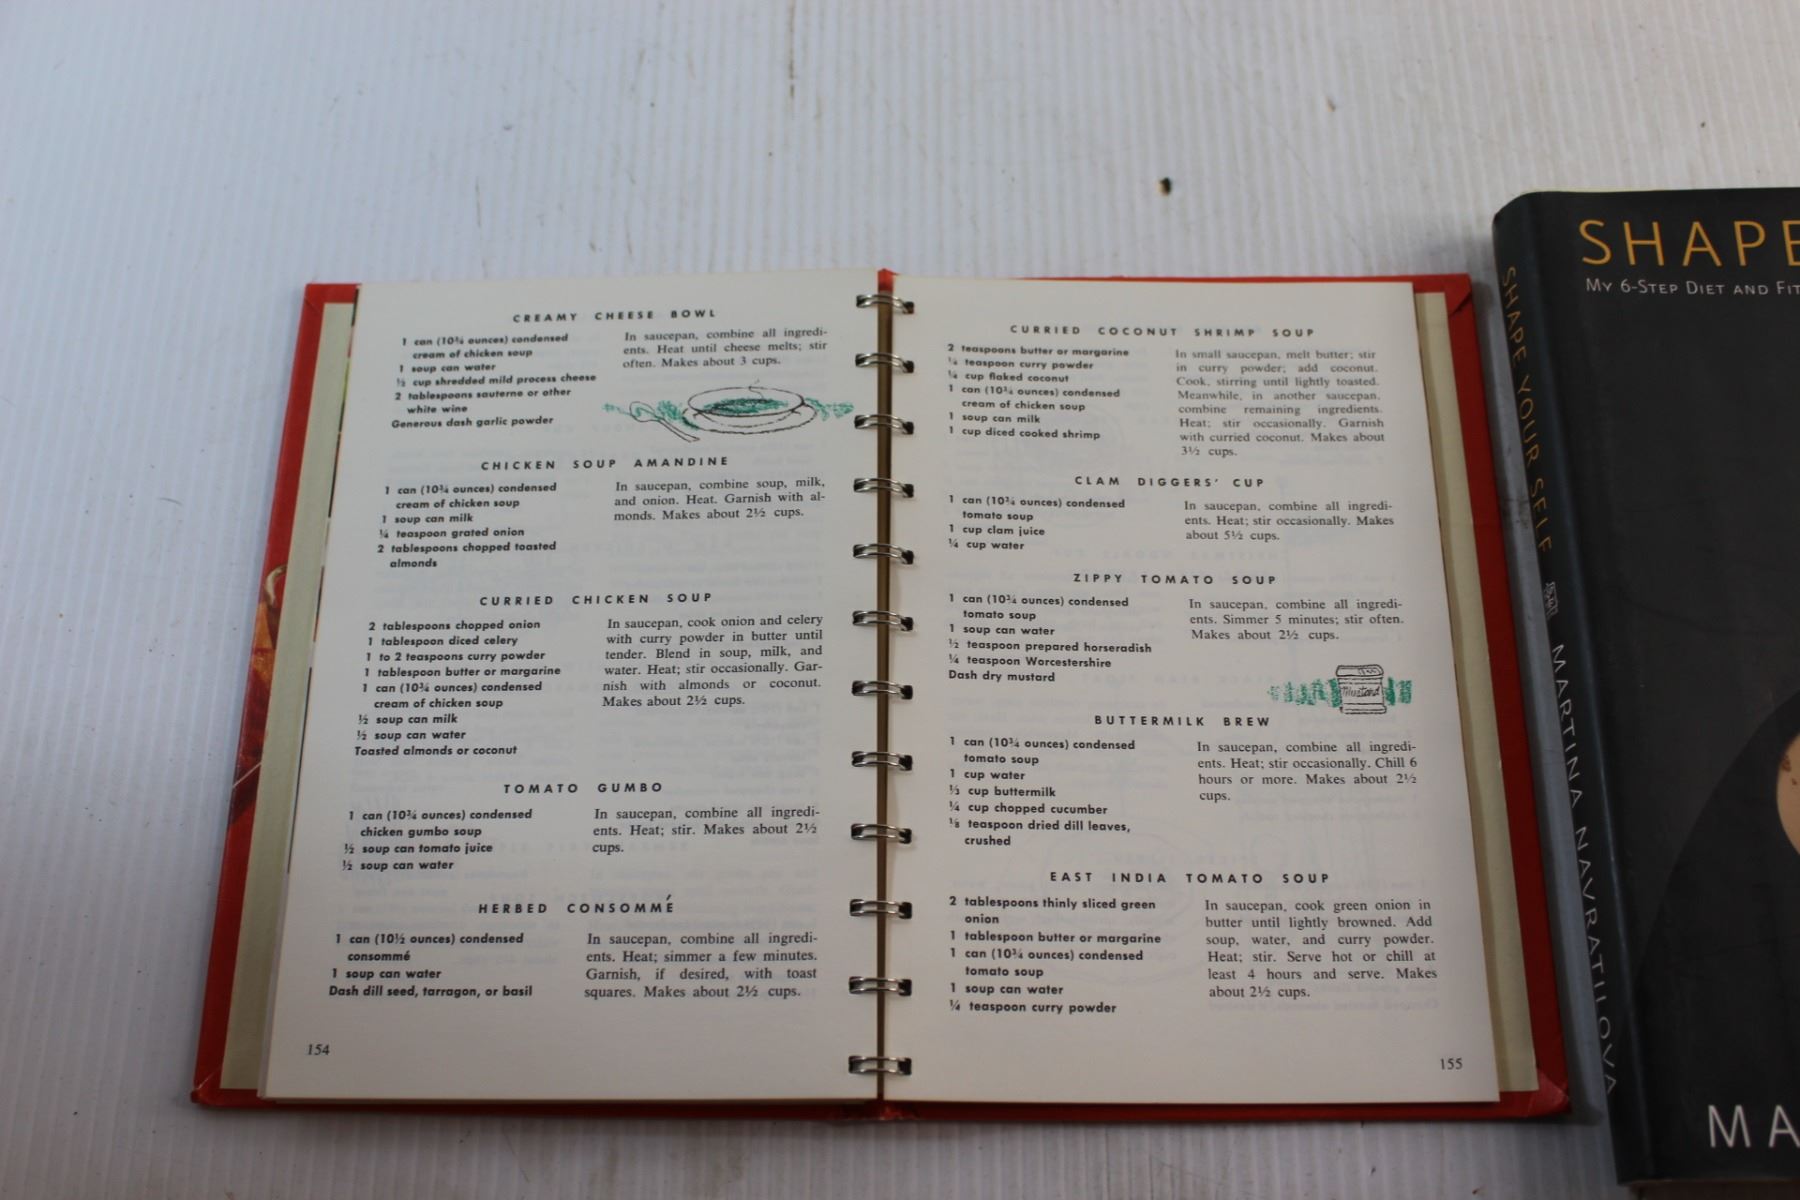 CREAMY CHEESE BOWL
1 can (10¾ ounces) condensed
cream of chicken soup
1 soup can water
½ cup shredded mild process cheese
2 tablespoons sauterne or other
white wine
Generous dash garlic powder
In saucepan, combine all ingredi-
ents. Heat until cheese melts; stir
often. Makes about 3 cups.
CHICKEN SOUP AMANDINE
1 can (10¾ ounces) condensed
cream of chicken soup
1 soup can milk
¼ teaspoon grated onion
2 tablespoons chopped toasted
almonds
In saucepan, combine soup, milk,
and onion. Heat. Garnish with al-
monds. Makes about 2½ cups.
CURRIED CHICKEN SOUP
2 tablespoons chopped onion
1 tablespoon diced celery
1 to 2 teaspoons curry powder
1 tablespoon butter or margarine
1 can (10¾ ounces) condensed
cream of chicken soup
½ soup can milk
½ soup can water
Toasted almonds or coconut
In saucepan, cook onion and celery
with curry powder in butter until
tender. Blend in soup, milk, and
water. Heat; stir occasionally. Gar-
nish with almonds or coconut.
Makes about 2½ cups.
TOMATO GUMBO
1 can (10¾ ounces) condensed
chicken gumbo soup
½ soup can tomato juice
½ soup can water
In saucepan, combine all ingredi-
ents. Heat; stir. Makes about 2½
cups.
HERBED CONSOMMÉ
1 can (10½ ounces) condensed
consommé
1 soup can water
Dash dill seed, tarragon, or basil
In saucepan, combine all ingredi-
ents. Heat; simmer a few minutes.
Garnish, if desired, with toast
squares. Makes about 2½ cups.
154
CURRIED COCONUT SHRIMP SOUP
2 teaspoons butter or margarine
¼ teaspoon curry powder
¼ cup flaked coconut
1 can (10¾ ounces) condensed
cream of chicken soup
1 soup can milk
1 cup diced cooked shrimp
In small saucepan, melt butter; stir
in curry powder; add coconut.
Cook, stirring until lightly toasted.
Meanwhile, in another saucepan,
combine remaining ingredients.
Heat; stir occasionally. Garnish
with curried coconut. Makes about
3½ cups.
CLAM DIGGERS' CUP
1 can (10¾ ounces) condensed
tomato soup
1 cup clam juice
¼ cup water
In saucepan, combine all ingredi-
ents. Heat; stir occasionally. Makes
about 5½ cups.
ZIPPY TOMATO SOUP
1 can (10¾ ounces) condensed
tomato soup
1 soup can water
½ teaspoon prepared horseradish
¼ teaspoon Worcestershire
Dash dry mustard
In saucepan, combine all ingredi-
ents. Simmer 5 minutes; stir often.
Makes about 2½ cups.
Mustard
BUTTERMILK BREW
1 can (10¾ ounces) condensed
tomato soup
1 cup water
⅓ cup buttermilk
¼ cup chopped cucumber
⅛ teaspoon dried dill leaves,
crushed
In saucepan, combine all ingredi-
ents. Heat; stir occasionally. Chill 6
hours or more. Makes about 2½
cups.
EAST INDIA TOMATO SOUP
2 tablespoons thinly sliced green
onion
1 tablespoon butter or margarine
1 can (10¾ ounces) condensed
tomato soup
1 soup can water
¼ teaspoon curry powder
In saucepan, cook green onion in
butter until lightly browned. Add
soup, water, and curry powder.
Heat; stir. Serve hot or chill at
least 4 hours and serve. Makes
about 2½ cups.
155
SHAPE YOUR SELF MARTINA NAVRATILOVA
SHAPE
MY 6-STEP DIET AND FIT
MA